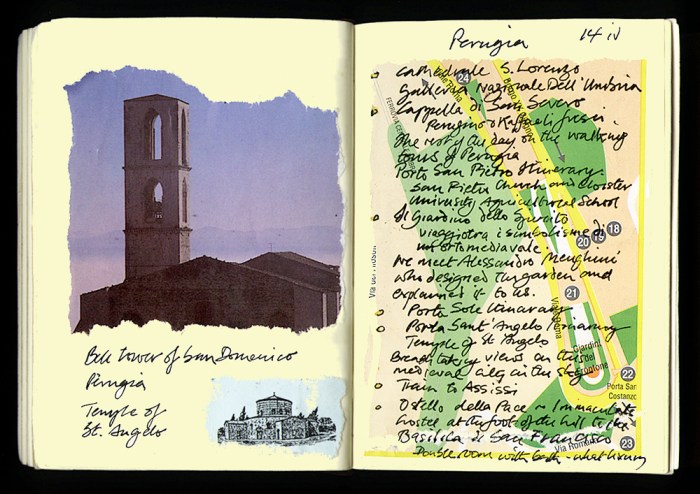 Bell tower of San Domenico
Perugia
Temple of
St. Angelo
Perugia 14 iv
Cathedrale S. Lorenzo
Galleria Nazionale Dell'Umbria
Cappella di San Severo
Perugino & Raffaeli fresci.
The rest of the day on the walking
tours of Perugia
Porta San Pietro Itinerary.
San Pietro Church and cloister
University Agricultural School
Il Giardino dello Spirito
viaggio tra i simbolismo di
un orto mediavale.
We meet Alessandro Menghini
who designed the garden and
explained it to us.
Porta Sole itinerary
Porta Sant'Angelo itinerary
Temple of St Angelo
Breathtaking views on this
medieval city in the sky
Train to Assisi
Ostello della Pace ~ Immaculate
hostel at the foot of the hill to the
Basilica di San Francesco
Double room with bath - what luxury
24
20 19 18
21
Via Roma
Giardini
del
Frontone
22
Porta San
Costanzo
Via Roma
23